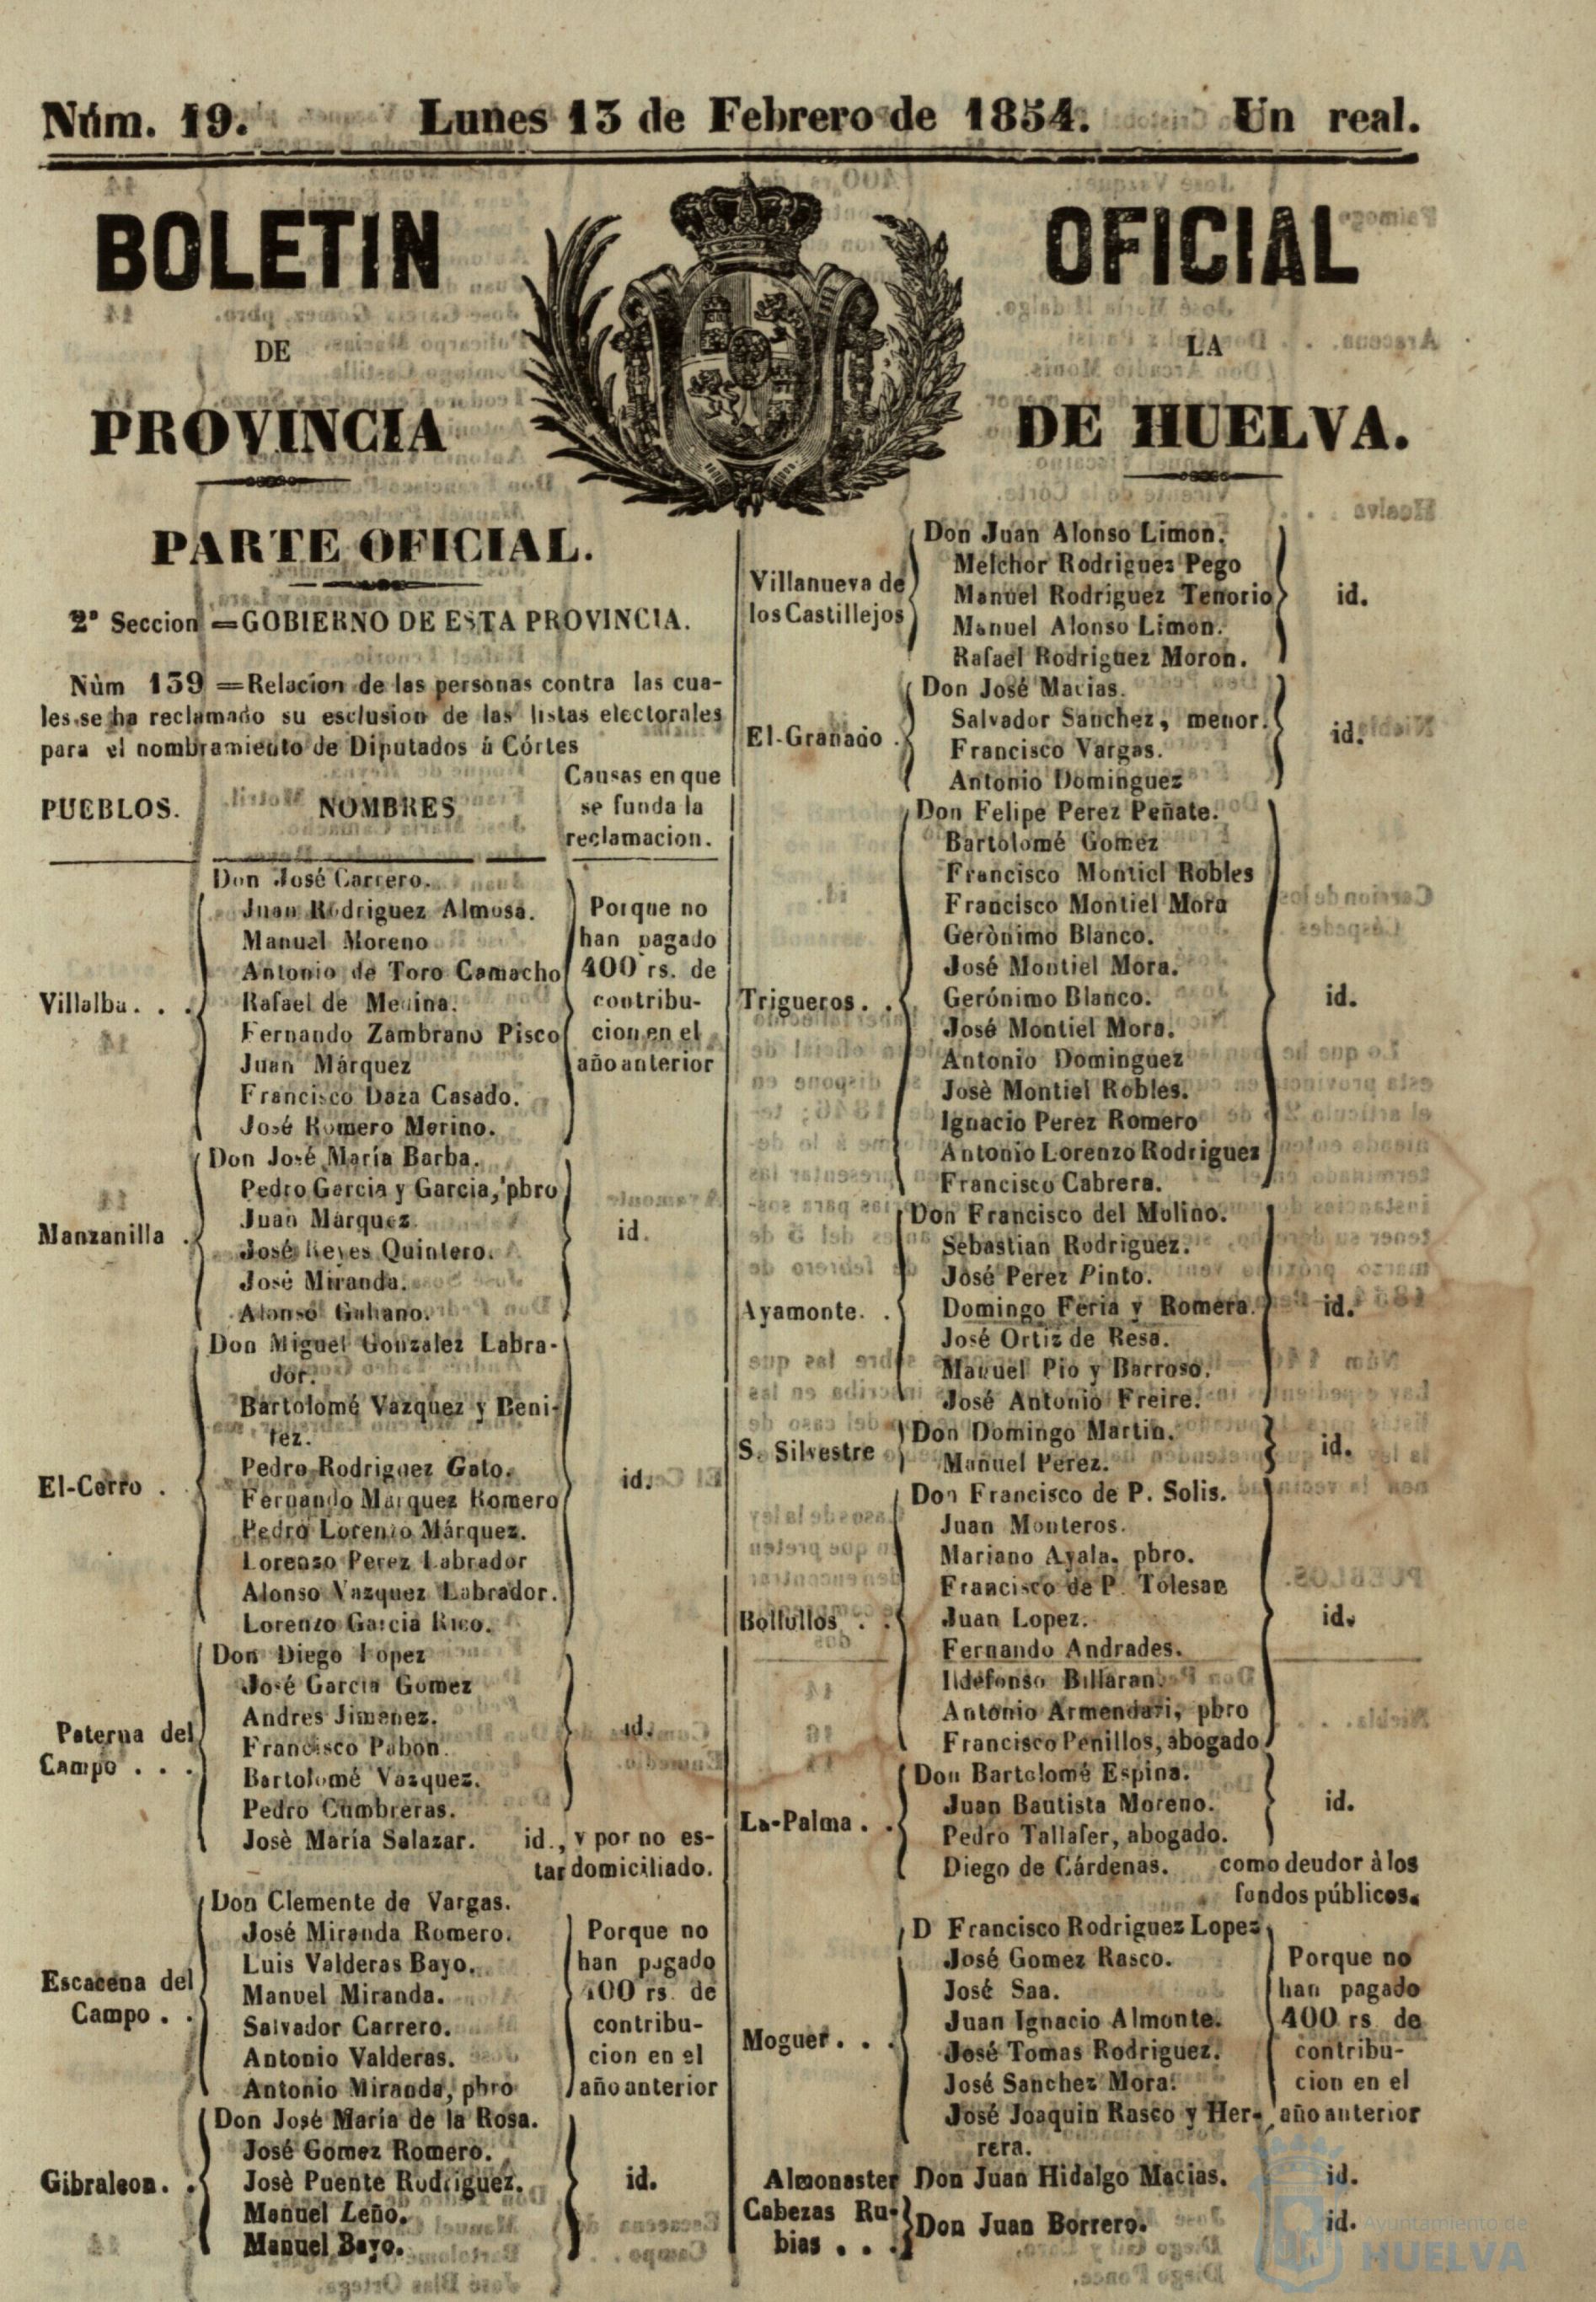 Núm. 19. Lunes 13 de Febrero de 1854. Un real.
BOLETIN OFICIAL
DE LA
PROVINCIA DE HUELVA.
PARTE OFICIAL.
2ª Seccion =GOBIERNO DE ESTA PROVINCIA.
Nùm 139 =Relacion de las personas contra las cua-
les se ha reclamado su esclusion de las listas electorales
para el nombramiento de Diputados á Córtes
PUEBLOS.
NOMBRES
Causas en que
se funda la
reclamacion.
Villalba. . .
Don José Carrero.
Juan Rodriguez Almosa.
Manuel Moreno
Antonio de Toro Camacho
Rafael de Medina.
Fernando Zambrano Pisco
Juan Márquez
Francisco Daza Casado.
José Romero Merino.
Porque no
han pagado
400 rs. de
contribu-
cion en el
año anterior
Manzanilla .
Don José María Barba.
Pedro Garcia y Garcia, pbro
Juan Márquez.
José Reyes Quintero.
José Miranda.
Alonso Galiano.
id.
El-Cerro .
Don Miguel Gonzalez Labra-
dor.
Bartolomé Vazquez y Beni-
tez.
Pedro Rodriguez Gato.
Fernando Marquez Romero
Pedro Lorenzo Márquez.
Lorenzo Perez Labrador
Alonso Vazquez Labrador.
Lorenzo Garcia Rico.
id.
Paterna del
Campo . . .
Don Diego Lopez
José Garcia Gomez
Andres Jimenez.
Francisco Pabon.
Bartolomé Vazquez.
Pedro Cumbreras.
id.
Josè María Salazar. id., y por no es-
tar domiciliado.
Escacena del
Campo . .
Don Clemente de Vargas.
José Miranda Romero.
Luis Valderas Bayo.
Manuel Miranda.
Salvador Carrero.
Antonio Valderas.
Antonio Miranda, pbro
Porque no
han pagado
400 rs. de
contribu-
cion en el
año anterior
Gibraleon. .
Don José María de la Rosa.
José Gomez Romero.
Josè Puente Rodriguez.
Manuel Leño.
Manuel Bayo.
id.
Villanueva de
los Castillejos
Don Juan Alonso Limon.
Melchor Rodriguez Pego
Manuel Rodriguez Tenorio
Manuel Alonso Limon.
Rafael Rodriguez Moron.
id.
El-Granado .
Don José Macias.
Salvador Sanchez, menor.
Francisco Vargas.
Antonio Dominguez
id.
Trigueros. . .
Don Felipe Perez Peñate.
Bartolomé Gomez
Francisco Montiel Robles
Francisco Montiel Mora
Gerònimo Blanco.
José Montiel Mora.
Gerónimo Blanco.
José Montiel Mora.
Antonio Dominguez
Josè Montiel Robles.
Ignacio Perez Romero
Antonio Lorenzo Rodriguez
Francisco Cabrera.
id.
Ayamonte. .
Don Francisco del Molino.
Sebastian Rodriguez.
José Perez Pinto.
Domingo Feria y Romera.
José Ortiz de Resa.
Manuel Pio y Barroso.
José Antonio Freire.
id.
S. Silvestre
Don Domingo Martin.
Manuel Perez.
id.
Bollullos . .
Don Francisco de P. Solis.
Juan Monteros.
Mariano Ayala, pbro.
Francisco de P. Tolesan
Juan Lopez.
Fernando Andrades.
Ildefonso Billaran.
Antonio Armendari, pbro
Francisco Penillos, abogado
id.
La-Palma . .
Don Bartolomé Espina.
Juan Bautista Moreno.
Pedro Tallafer, abogado.
id.
Diego de Cárdenas. como deudor à los
fondos públicos.
Moguer. . .
D Francisco Rodriguez Lopez
José Gomez Rasco.
José Saa.
Juan Ignacio Almonte.
José Tomas Rodriguez.
José Sanchez Mora.
José Joaquin Rasco y Her-
rera.
Porque no
han pagado
400 rs de
contribu-
cion en el
año anterior
Almonaster Don Juan Hidalgo Macias. id.
Cabezas Ru-
bias . . .
Don Juan Borrero. id.
Ayuntamiento de
HUELVA